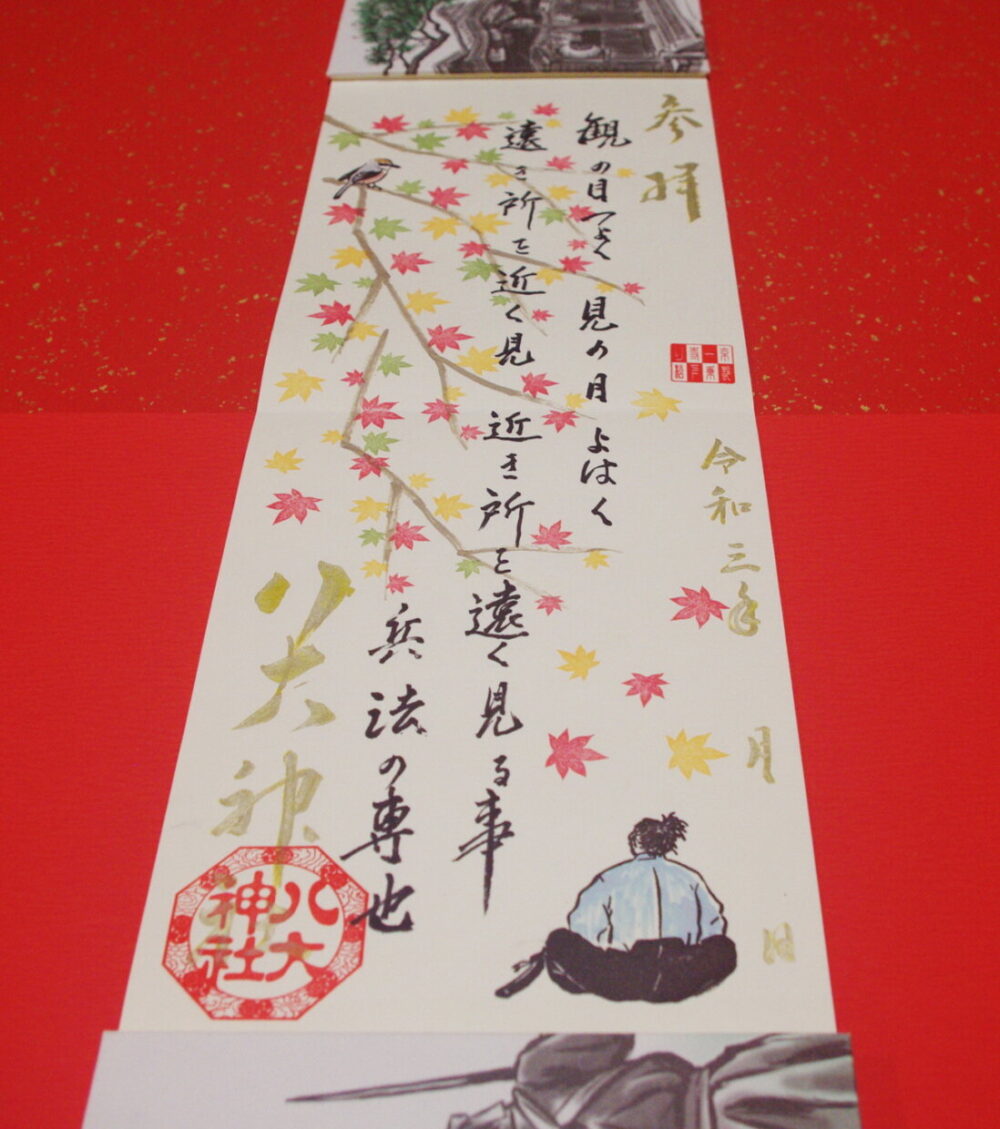 参拝
令和三年 月 日
観の目つよく 見の目よはく
遠き所を近く見 近き所を遠く見る事
兵法の専也
八大神社
八大神社